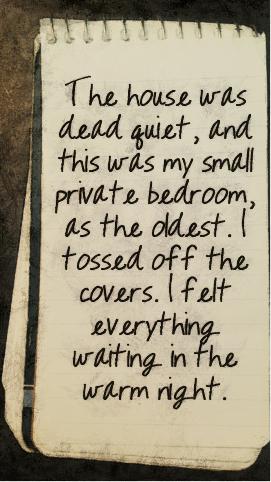 The house was
dead quiet, and
this was my small
private bedroom,
as the oldest. I
tossed off the
covers. I felt
everything
waiting in the
warm night.